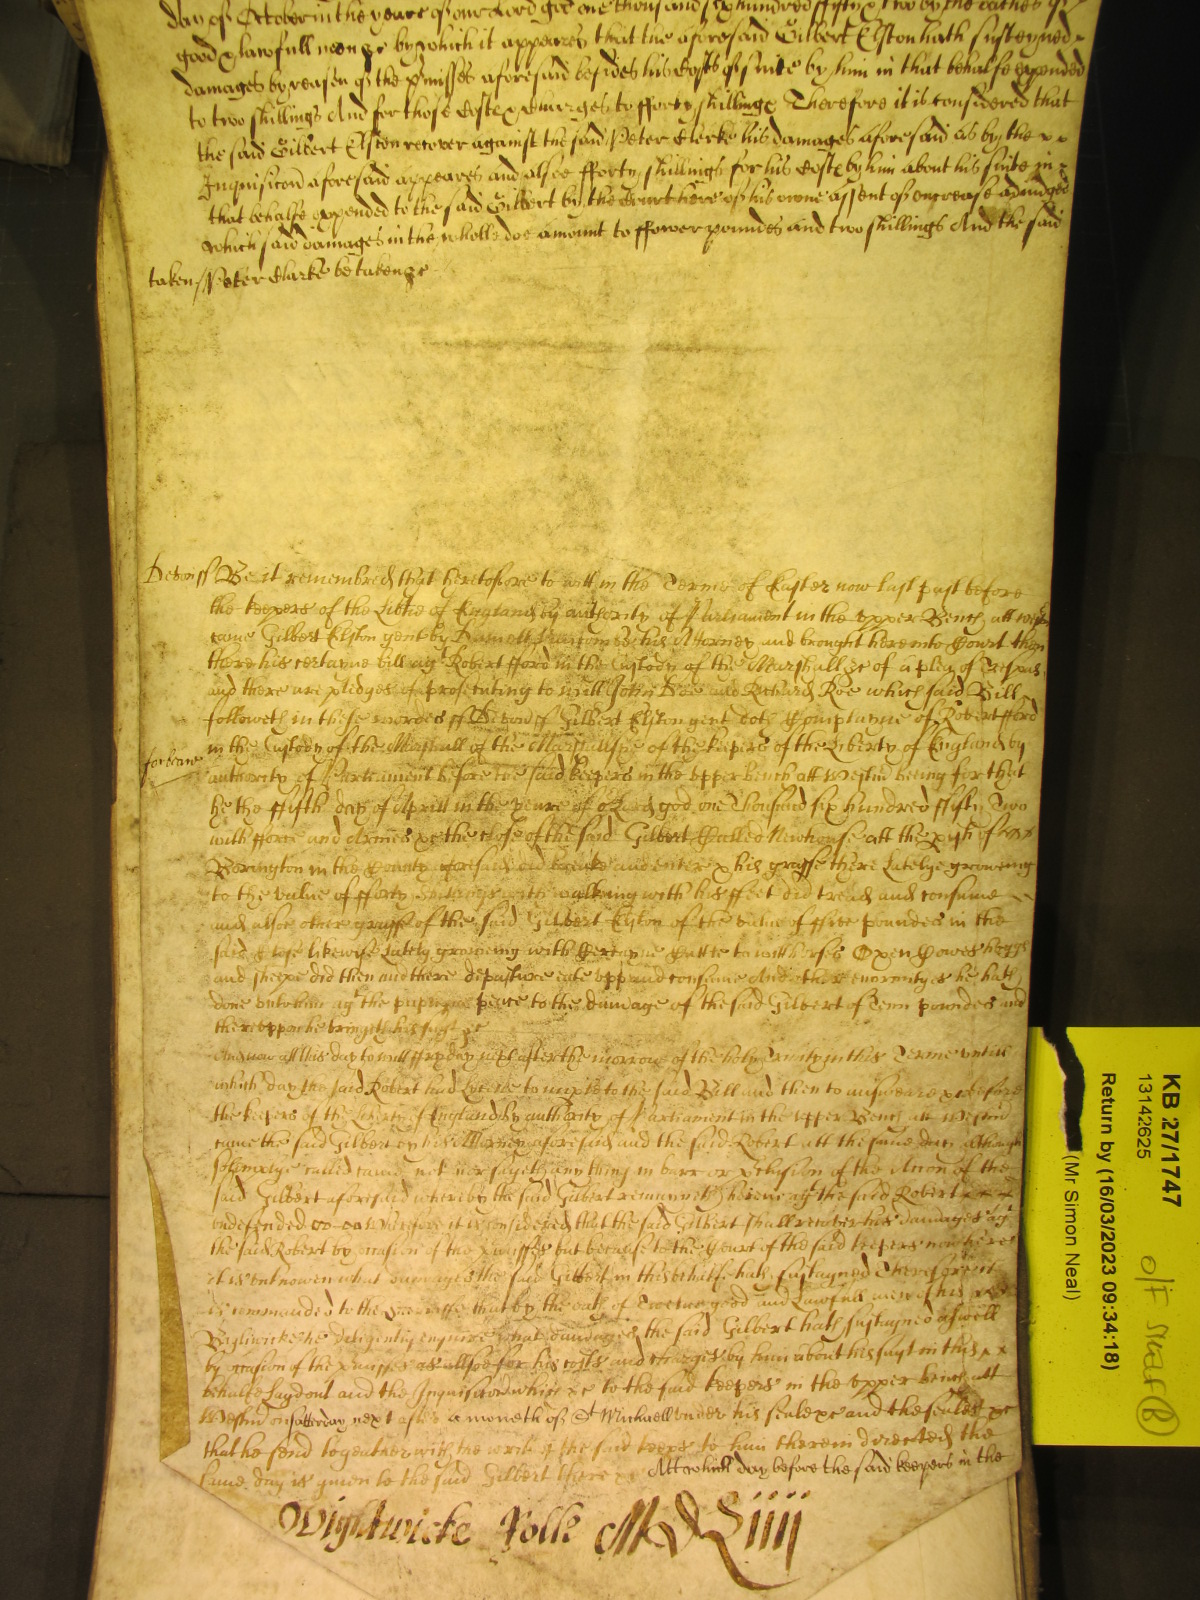 day of October in the yeare of our Lord god one thousand six hundred fifty & two by the oathes of
good & lawfull men &c by which it appeares that the aforesaid Gilbert Elston hath susteyned
damages by reason of the pmisses aforesaid besides his Costs of suite by him in that behalfe expended
to two shillings And for those Costes & charges to fforty shillings Therefore it is considered that
the said Gilbert Elston recover against the said Peter Clerke his damages aforesaid as by the x x
Inquisicon aforesaid appeares and alsoe fforty shillings for his Costs by him about his suite in
that behalfe expended to the said Gilbert by the Court here of his owne assent of encrease adiudged
which said damages in the whole doe amount to ffower poundes and two shillings And the said
taken // Peter Clarke be taken &c
Devon ss Be it remembred that heretofore to witt in the Terme of Easter now last past before
the keepers of the Libtie of England by authority of Parliament in the upper Bench att
came Gilbert Elston gent by his Attorney and brought here into Court then
there his certayne bill agt Robert fford in the Custody of the Marshall &c of a plea of Trespas
and there are pledges of prosecuting to witt John Doe and Richard Roe which said Bill
followeth in these wordes ss Devon ss Gilbert Elston gent doth Complayne of Robert fford
in the Custody of the Marshall of the Marshalsye of the keepers of the liberty of England by
authority of Parliament before the said keepers in the upper bench att Westm beeing for that
he the ffifth day of Aprill in the yeare of or Lord god one Thousand six hundred ffifty Two
with fforce and Armes &c the close of the said Gilbert Called Newhouse att the pish of x x
in the County aforesaid did breake and enter & his grasse there lately groweing
to the value of fforty shillings with walkeing with his ffeet did tread and consume
and alsoe other grasse of the said Gilbert Elston of the value of ffive poundes in the
said Close likewise lately groweing with Certayne Cattle to witt horses Oxen Cowes hoggs
and sheepe did then and there depasture eate upp and consume And other enormityes he hath
done unto him agt the publique peace to the damage of the said Gilbert of Tenn poundes and
thereuppon he bringeth his suyt &c
And now att this day to witt ffryday next after the morrow of the holy Trinity in this Terme untill
which day the said Robert had Licence to imple to the said Bill and then to answeare &c before
the keepers of the Liberty of England by authority of Parliament in the upper Bench att Westm
came the said Gilbert by his Attorney aforesaid and the said Robert att the same day although
solempnlye called came not nor sayeth any thing in barr or pclusion of the Accon of the
said Gilbert aforesaid whereby the said Gilbert remayneth herein agt the said Robert
undefended Therefore it is considered that the said Gilbert shall recover his damages agt
the said Robert by occasion of the pmisses but because to the Court of the said keepers now here
it is unknowen what damages the said Gilbert in this behalfe hath sustayned Therefore it
is commanded to the Sheriffe that by the oath of Twelve good and Lawfull men of his
Bayliwicke he diligently enquire what damages the said Gilbert hath sustayned aswell
by occasion of the pmisses as allsoe for his costs and charges by him about his suyt in this x x
behalfe layd out and the Inquisicon which &c to the said keepers in the upper bench att
Westm on satterday next after a moneth of St Michaell under his seale &c and the seales &c
that he send togeather with the writt of the said keeps to him therein directed the
same day is given to the said Gilbert there &c Att which day before the said keepers in the
Wightwicke Rolle
taken
KB 27/1747
13142625
Return by (16/03/2023 09:34:18)
(Mr Simon Neal)